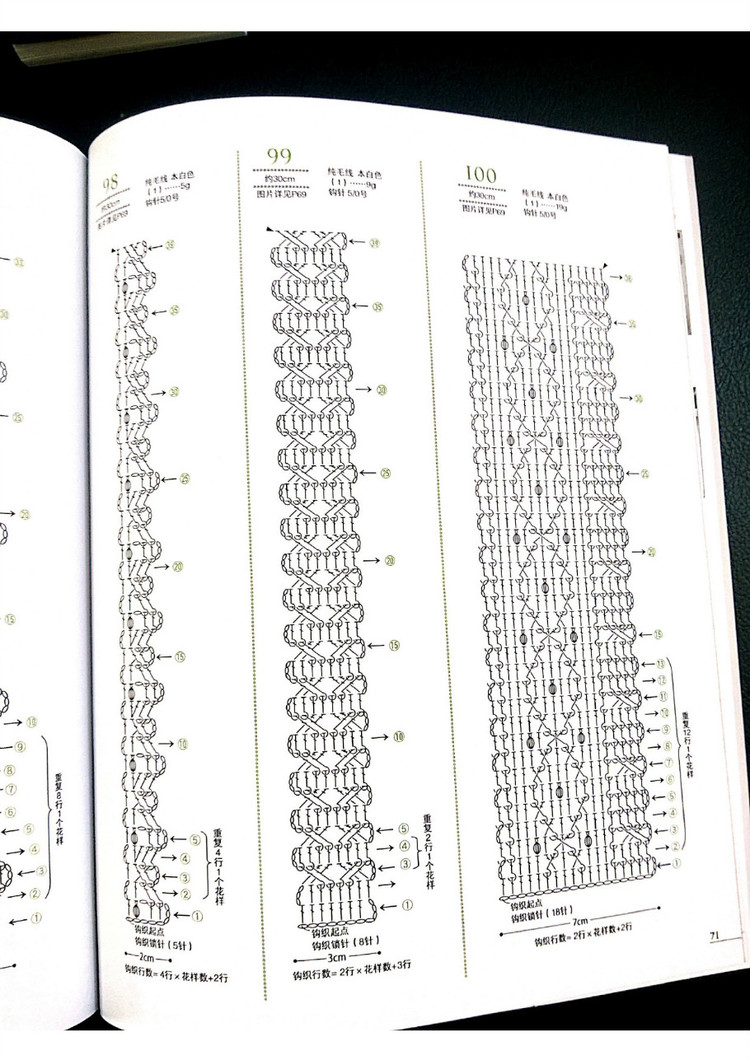 98
约30cm
图片详见P69
纯毛线 本白色
(1)……5g
钩针 5/0号
㊳
㉟
㉚
㉕
⑳
⑮
⑩
⑤
④
③
②
①
重复4行1个花样
钩织起点
钩织锁针(5针)
2cm
钩织行数=4行×花样数+2行
99
约30cm
图片详见P69
纯毛线 本白色
(1)……9g
钩针 5/0号
㊴
㉟
㉚
㉕
⑳
⑮
⑩
⑤
④
③
①
重复2行1个花样
钩织起点
钩织锁针(8针)
3cm
钩织行数=2行×花样数+3行
100
约30cm
图片详见P69
纯毛线 本白色
(1)……19g
钩针 5/0号
㉚
㉕
⑮
⑬
⑫
⑪
⑩
⑨
⑧
⑦
⑥
⑤
④
③
②
①
重复12行1个花样
钩织起点
钩织锁针(18针)
7cm
钩织行数=2行×花样数+2行
71
⑮
⑩
⑨
⑧
⑦
⑥
⑤
④
③
②
①
重复8行1个花样